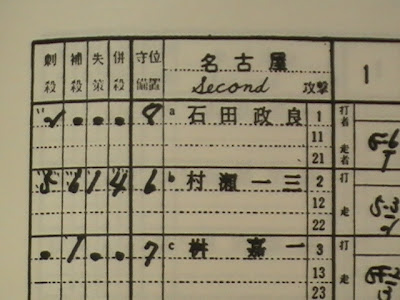 刺殺 補殺 失策 併殺 守備位置 名古屋 Second 攻撃 1
2 • • • 8 a 石田政良 1 打者 8-6
11 走者 1
21
5 6 1 4 6 b 村瀬一三 2 打 5-3
12 走 2
22
• 1 • • 7 c 桝嘉一 3 打
13 走 3
23